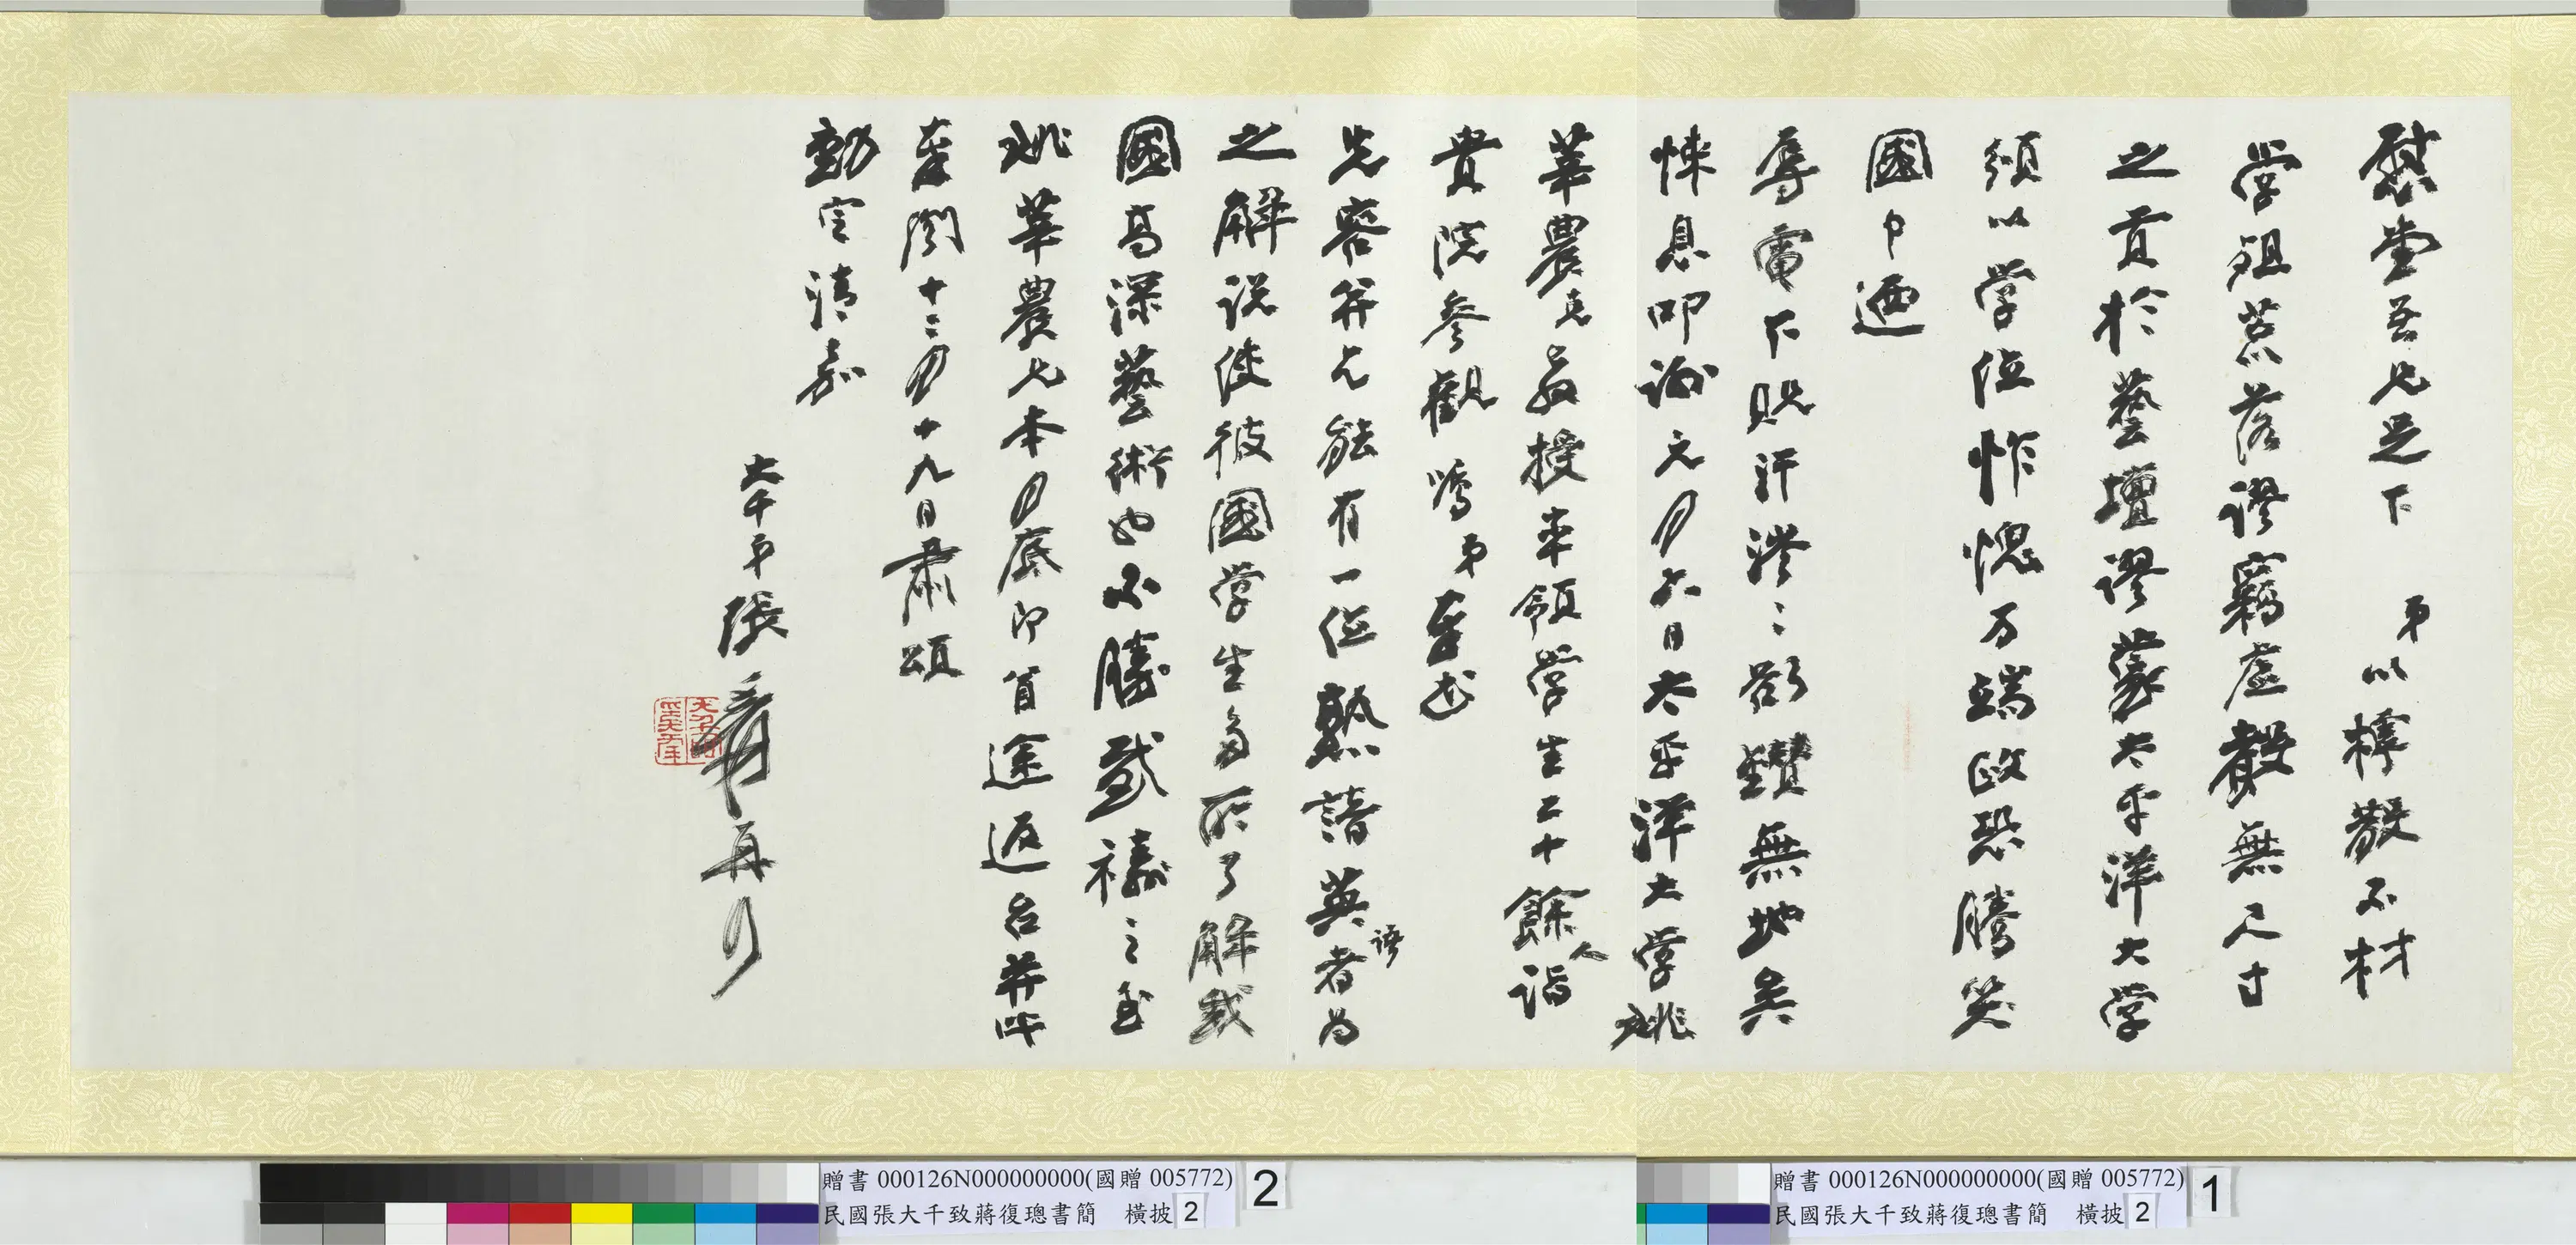 慰堂吾兄足下 弟以樗散不材
学殖荒落謬竊虛聲無尺寸
之貢於藝壇謬蒙太平洋大学
頒以学位怍愧万端政恐騰笑
國中迺
辱電下貺汗濙〻歉鑽無地吳
悚息叩謝元月六日太平洋大学姚
莘農克教授率領学生二十餘人詣
貴院參觀嘱弟奉书
先容并乞能有一位熟諳英語者为
之解说使彼國学生多所了解我
國高深藝術也不勝感禱之至
姚莘農兄本月底即首途返台并此
奉闻十二月十九日肅頌
勛安清嘉
大千弟張爰再丁
贈書 000126N000000000(國贈 005772) 1
民國張大千致蔣復璁書簡 橫披 2
贈書 000126N000000000(國贈 005772) 2
民國張大千致蔣復璁書簡 橫披 2